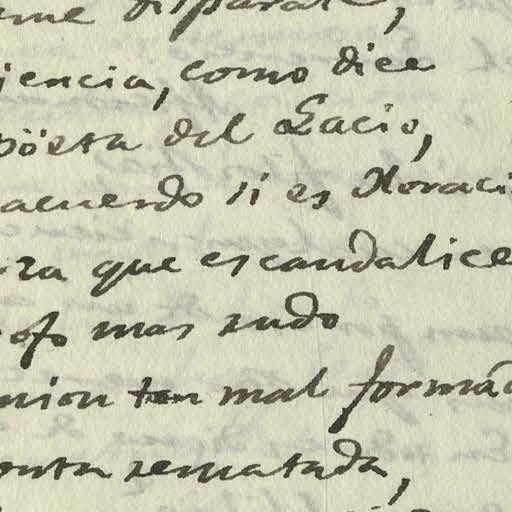 disparate,
iencia, como dice
pöeta del Lacio,
acuerdo si es Horaci
ra que escandalice
ofo mas rudo
nion tan mal formá
onta rematada,